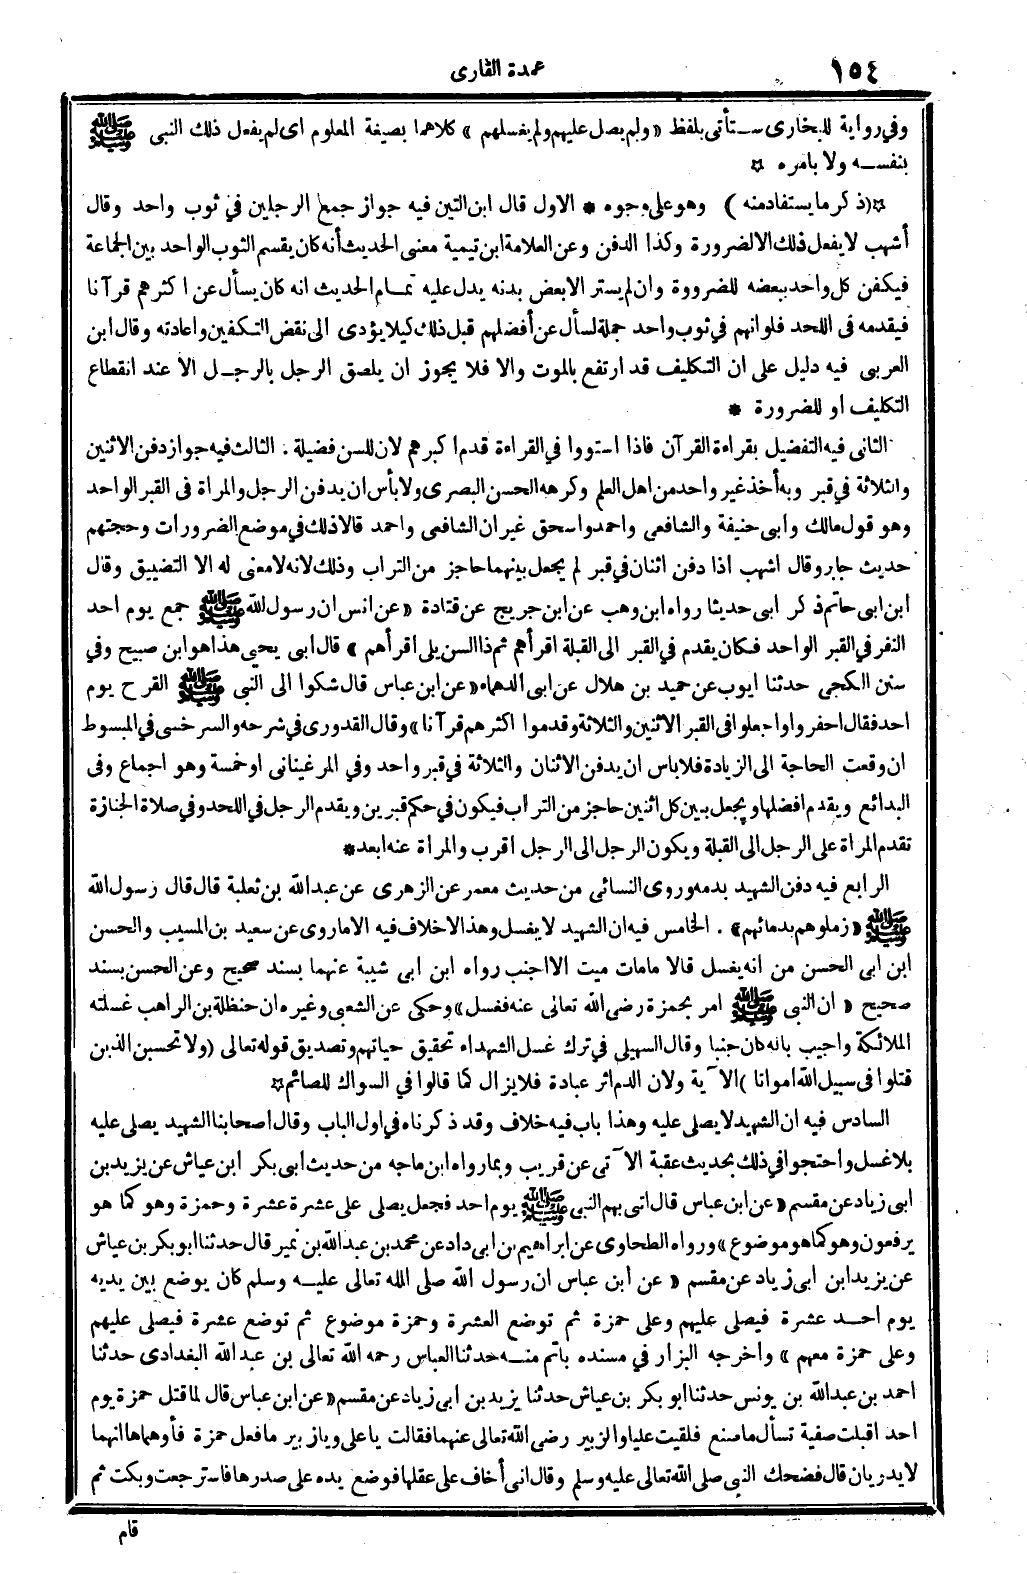 ١٥٤
عمدة القارى
وفي رواية للبخارى ستأتى بلفظ «ولم يصل عليهم ولم يغسلهم» كلاهما بصيغة المعلوم اى لم يفعل ذلك النبى ﷺ
بنفسه ولا بامره ✩
✩(ذكر ما يستفاد منه) وهو على وجوه * الاول قال ابن التين فيه جواز جمع الرجلين في ثوب واحد وقال
أشهب لا يفعل ذلك الا لضرورة وكذا الدفن وعن العلامة ابن تيمية معنى الحديث أنه كان يقسم الثوب الواحد بين الجماعة
فيكفن كل واحد ببعضه للضرورة وان لم يستر الا بعض بدنه يدل عليه تمام الحديث انه كان يسأل عن اكثرهم قرآنا
فيقدمه فى اللحد فلو انهم في ثوب واحد جملة لسأل عن أفضلهم قبل ذلك كيلا يؤدى الى نقض التكفين واعادته وقال ابن
العربى فيه دليل على ان التكليف قد ارتفع بالموت والا فلا يجوز ان يلصق الرجل بالرجل الا عند انقطاع
التكليف او للضرورة *
الثانى فيه التفضيل بقراءة القرآن فاذا استووا في القراءة قدم اكبرهم لان للسن فضيلة . الثالث فيه جواز دفن الاثنين
والثلاثة في قبر وبه أخذ غير واحد من اهل العلم وكرهه الحسن البصرى ولا بأس ان يدفن الرجل والمراة فى القبر الواحد
وهو قول مالك وأبى حنيفة والشافعى واحمد واسحق غير ان الشافعى واحمد قالا ذلك في موضع الضرورات وحجتهم
حديث جابر وقال اشهب اذا دفن اثنان في قبر لم يجعل بينهما حاجز من التراب وذلك لانه لا معنى له الا التضييق وقال
ابن ابى حاتم ذكر ابى حديثا رواه ابن وهب عن ابن جريج عن قتادة «عن انس ان رسول الله ﷺ جمع يوم احد
النفر في القبر الواحد فكان يقدم في القبر الى القبلة اقرأهم ثم ذا السن يلى اقرأهم» قال ابى يحيى هذا هو ابن صبيح وفي
سنن الكجى حدثنا ايوب عن حميد بن هلال عن ابى الدهماء «عن ابن عباس قال شكوا الى النبى ﷺ القرح يوم
احد فقال احفروا واجعلوا فى القبر الاثنين والثلاثة وقدموا اكثرهم قرآنا» وقال القدورى في شرحه والسرخسى في المبسوط
ان وقعت الحاجة الى الزيادة فلا باس ان يدفن الاثنان والثلاثة في قبر واحد وفي المرغينانى او خمسة وهو اجماع وفى
البدائع ويقدم افضلها ويجعل بين كل اثنين حاجز من التراب فيكون في حكم قبرين ويقدم الرجل في اللحد وفي صلاة الجنازة
تقدم المراة على الرجل الى القبلة ويكون الرجل الى الرجل اقرب والمرأة عنه ابعد*
الرابع فيه دفن الشهيد بدمه وروى النسائى من حديث معمر عن الزهرى عن عبد الله بن ثعلبة قال قال رسول الله
ﷺ «زملوهم بدمائهم» . الخامس فيه ان الشهيد لا يغسل وهذا لا خلاف فيه الا ماروى عن سعيد بن المسيب والحسن
ابن ابى الحسن من انه يغسل قالا مامات ميت الا اجنب رواه ابن ابى شيبة عنهما بسند صحيح وعن الحسن بسند
صحيح «ان النبى ﷺ امر بحمزة رضى الله تعالى عنه فغسل» وحكى عن الشعبى وغيره ان حنظلة بن الراهب غسلته
الملائكة واجيب بانه كان جنبا وقال السهيلى في ترك غسل الشهداء تحقيق حياتهم وتصديق قوله تعالى (ولا تحسبن الذين
قتلوا فى سبيل الله امواتا) الآية ولان الدم اثر عبادة فلا يزال كما قالوا في السواك للصائم✩
السادس فيه ان الشهيد لا يصلى عليه وهذا باب فيه خلاف وقد ذكرناه في اول الباب وقال اصحابنا الشهيد يصلى عليه
بلا غسل واحتجوا في ذلك بحديث عقبة الآتى عن قريب وبما رواه ابن ماجه من حديث ابى بكر ابن عياش عن يزيد بن
ابى زياد عن مقسم «عن ابن عباس قال اتى بهم النبى ﷺ يوم احد فجعل يصلى على عشرة عشرة وحمزة وهو كما هو
يرفعون وهو كما هو موضوع» ورواه الطحاوى عن ابراهيم بن ابى داد عن محمد بن عبد الله بن نمير قال حدثنا ابو بكر بن عياش
عن يزيد ابن ابى زياد عن مقسم «عن ابن عباس ان رسول الله صلى الله تعالى عليه وسلم كان يوضع بين يديه
يوم احد عشرة فيصلى عليهم وعلى حمزة ثم توضع العشرة وحمزة موضوع ثم توضع عشرة فيصلى عليهم
وعلى حمزة معهم» وأخرجه البزار في مسنده باتم منه حدثنا العباس رحمه الله تعالى بن عبد الله البغدادى حدثنا
احمد بن عبد الله بن يونس حدثنا ابو بكر بن عياش حدثنا يزيد بن ابى زياد عن مقسم «عن ابن عباس قال لما قتل حمزة يوم
احد اقبلت صفية تسأل ما صنع فلقيت عليا والزبير رضى الله تعالى عنهما فقالت يا على ويا زبير ما فعل حمزة فأوهماها انهما
لا يدريان قال فضحك النبى صلى الله تعالى عليه وسلم وقال انى أخاف على عقلها فوضع يده على صدرها فاسترجعت وبكت ثم
قام